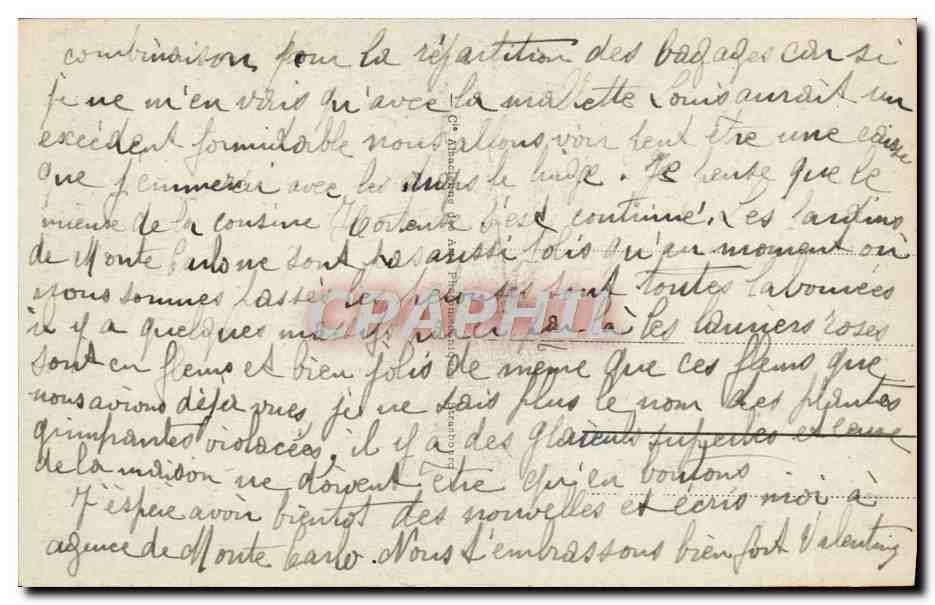 combinaison pour la répartition des bagages car si
je ne m'en vais qu'avec la mallette Louis aurait un
excédent formidable nous allons voir peut être une caisse
que j'emmerai avec les draps le linge. Je pense que le
mieux de la cousine Hortense s'est continué. Les jardins
de Monte Carlo ne sont pas aussi jolis qu'au moment où
nous sommes passés les pelouses sont toutes labourées
il y a quelques massifs par ci par là les lauriers roses
sont en fleurs et bien jolis de même que ces fleurs que
nous avions déjà vues je ne sais plus le nom des plantes
grimpantes violacées, il y a des glaïeuls superbes et ceux
de la maison ne doivent être qu'en boutons
J'espère avoir bientôt des nouvelles et écris moi à
agence de Monte Carlo. Nous t'embrassons bien fort Valentine
Cie Alsacienne des Arts Photomécaniques Strasbourg
CRAPHIL